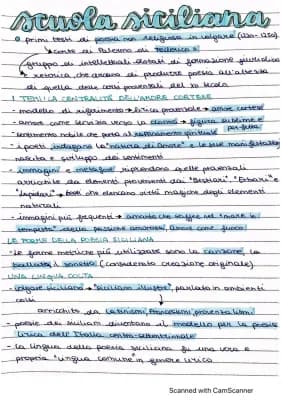 scuola siciliana
• primi testi di poesia non religiosa in volgare (1230-1250)
↳ corte di Palermo di Federico II
gruppo di intellettuali dotati di formazione giuridica
e retorica che cercava di produrre poesia all'altezza
di quella delle corti provenzali del XII secolo
I TEMI: LA CENTRALITÀ DELL'AMORE CORTESE
- modello di riferimento → lirica provenzale → amore cortese
- amore come servizio verso la donna → figura sublime e perfetta
- sentimento nobile che porta al raffinamento spirituale
- i poeti indagano la "natura di Amore" e le sue manifestazioni
nascita e sviluppo dei sentimenti
- immagini e metafore riprendono quelle provenzali
arricchite da elementi provenienti dai "Bestiari" "Erbari" e
"Lapidari" → che elencano virtù magiche degli elementi
naturali
- immagini più frequenti → amante che soffre nel "mare in
tempesta" della passione amorosa, amore come fuoco
LE FORME DELLA POESIA SICILIANA
- Le forme metriche più utilizzate sono la canzone, la
ballata e sonetto (considerato creazione originale)
UNA LINGUA COLTA
- volgare siciliano → "siciliano illustre", parlato in ambienti
colti
arricchito da latinismi, francesismi, provenzalismi
- poesie dei siciliani diventano il modello per la poesia
lirica dell'Italia centro-settentrionale
- La lingua della poesia siciliana fu una vera e
propria "lingua comune" in genere lirico
Scanned with CamScanner